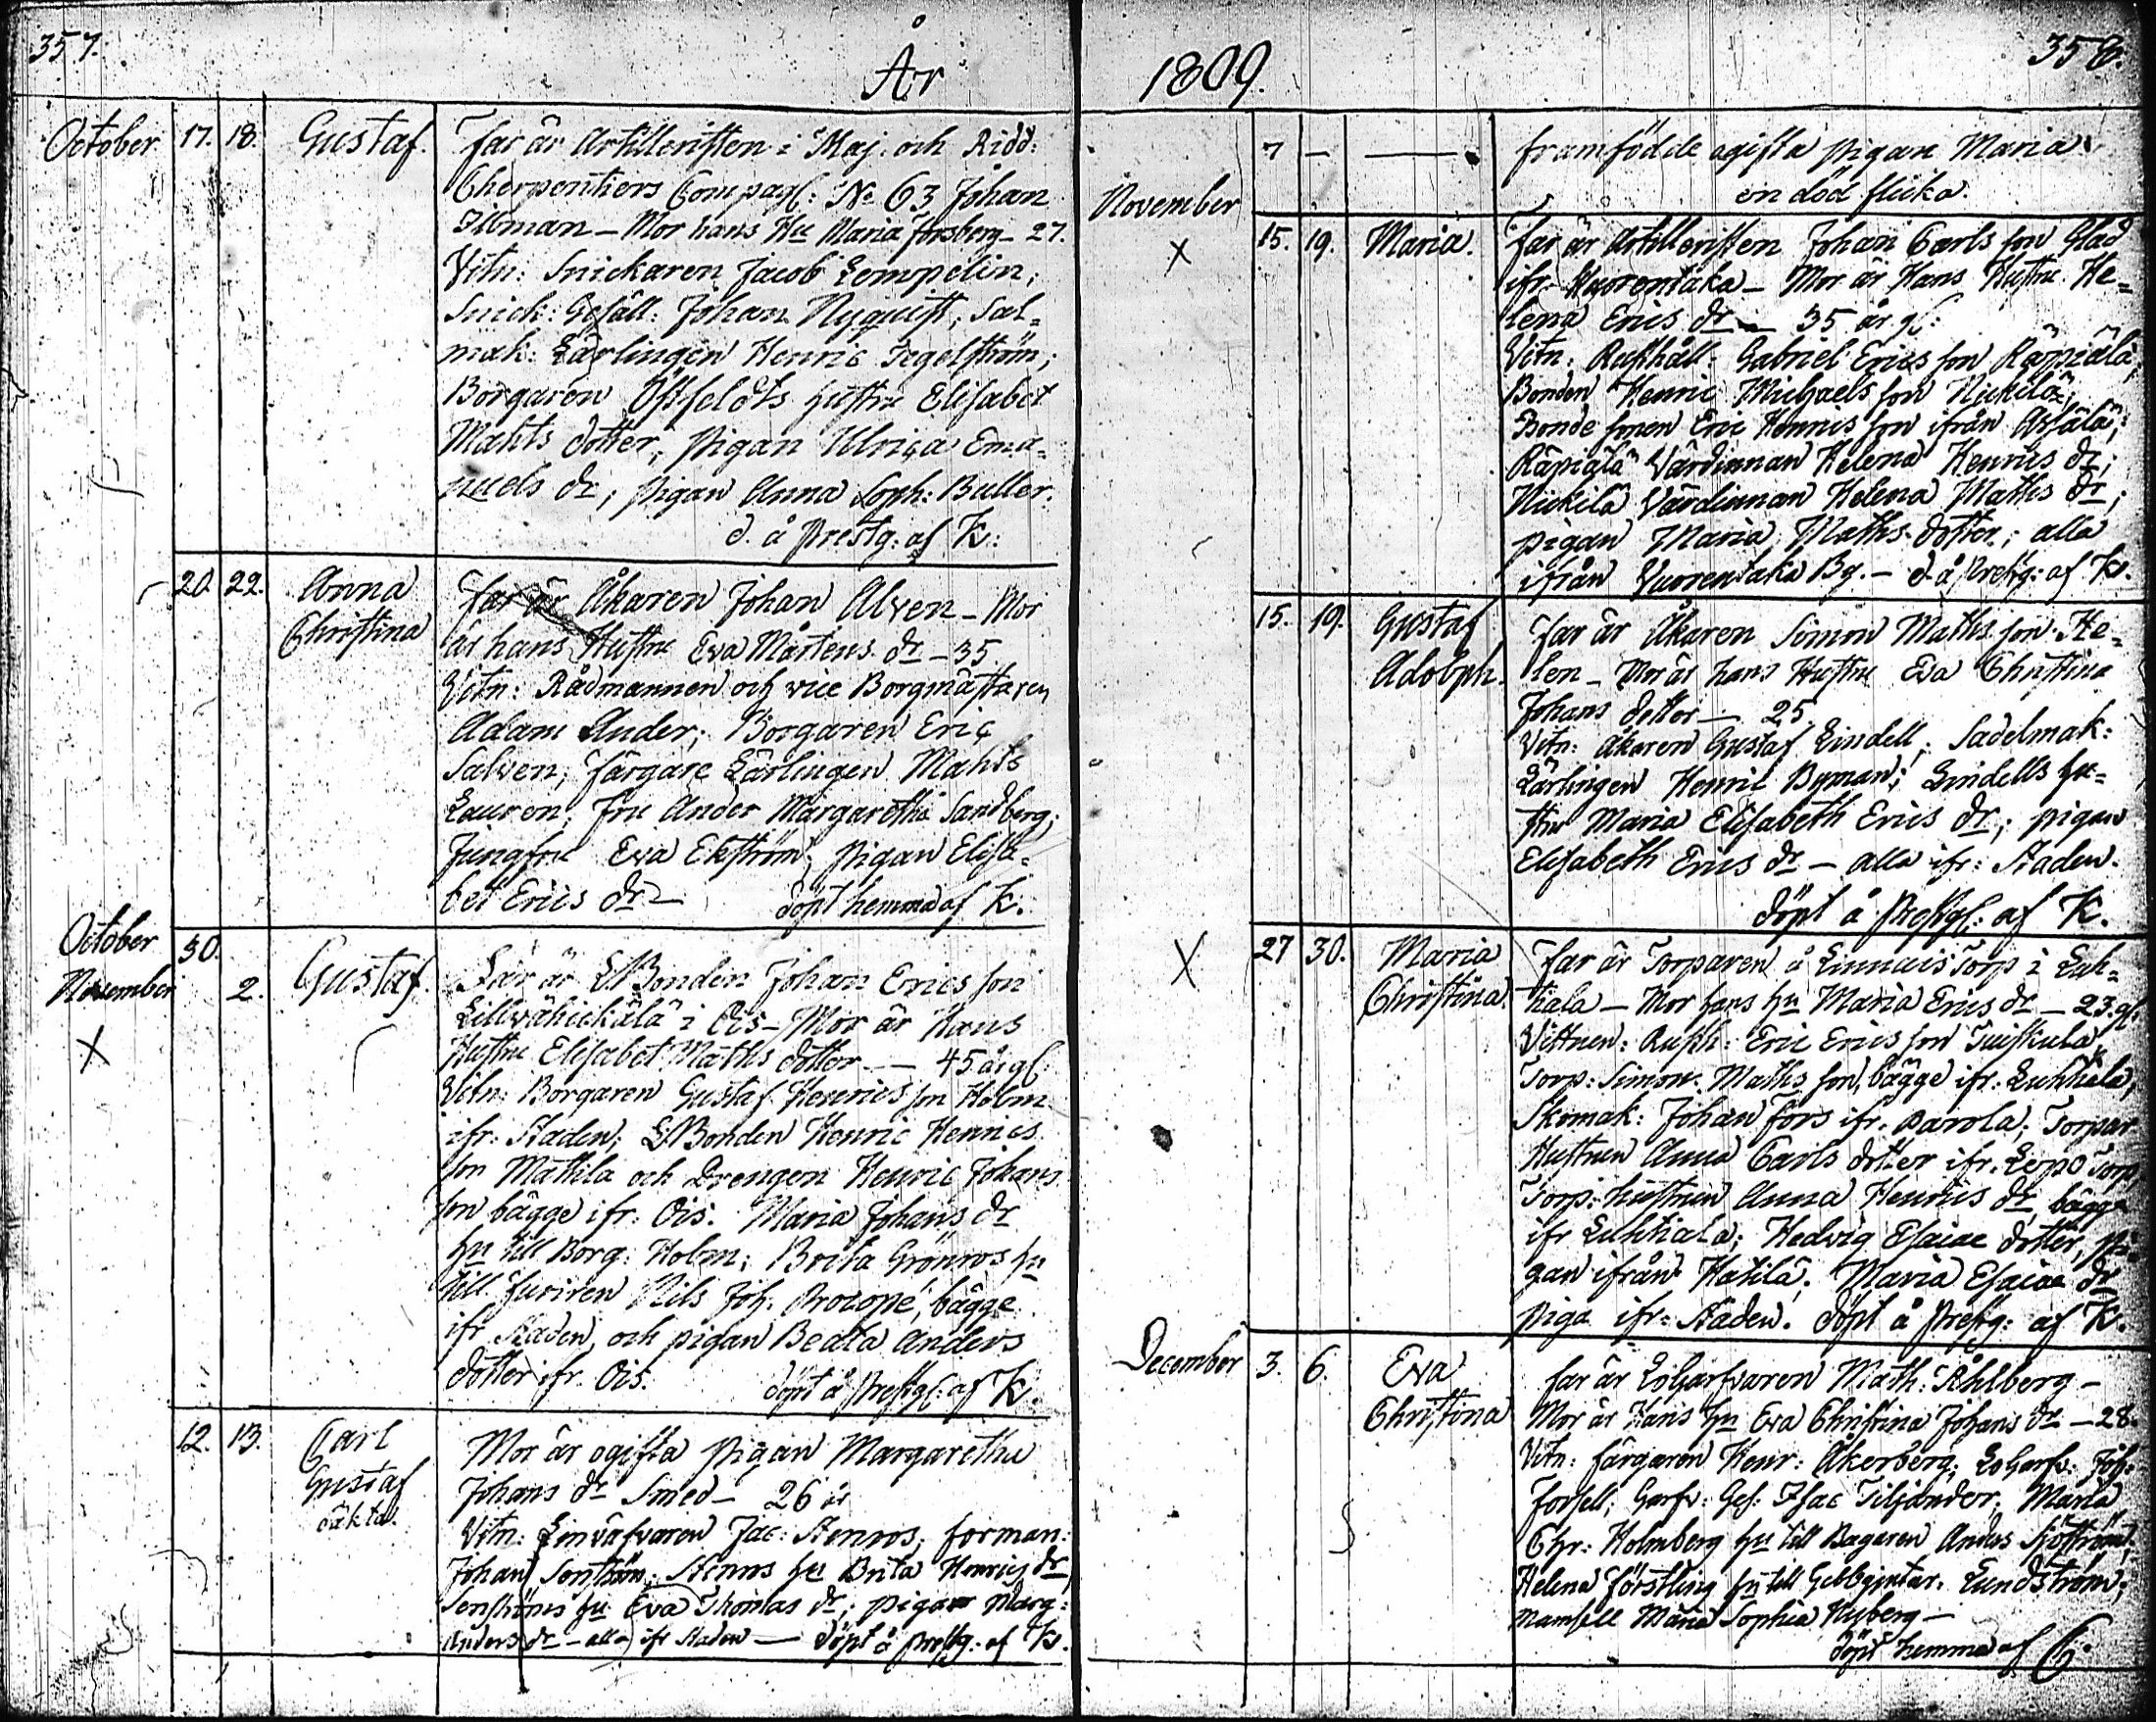 357.
År
October 17. 18. Gustaf. Far är Artilleristen i Maj. och Ridd:
Cherpentiers Compagl: No 63 Johan
Illman – Mor hans Hu Maria Forsberg – 27.
Vitn: Snickaren Jacob Lempelin;
Snick: Gesäll: Johan Nyquist, Sal=
mak: Lärlingen Henric Tegelström;
Borgaren Öhfeldts hustru Elisabet
Mahts dotter, pigan Ulrica Ema=
nuels dr; pigan Anna Soph: Buller.
d. å Prestg: af K:
20. 22. Anna Far är Åkaren Johan Alven – Mor
Christina är hans Hustru Eva Mårtens dr – 35
Vitn: Rådmannen och vice Borgmästaren
Adam Ander; Borgaren Eric
Salven; färgare Lärlingen Mahts
Lauren; Fru Ander Margaretha Sandberg;
Jungfru Eva Ekström; pigan Elisa=
bet Erics dr – döpt hemma af K.
October 30.
November 2. Gustaf. Far är LBonden Johan Erics son
X Lillvähickälä i Ois – Mor är Hans
Hustru Elisabet Maths dotter – 45 år gl:
Vitn: Borgaren Gustaf Henrics son Holm
ifr: Staden; LBonden Henric Henrics
son Mattila och Drengen Henric Johans
son bägge ifr: Ois. Maria Johans dr
hu till Borg: Holm; Brita Grönros hu
till furiren Nils Joh: Procopé, bägge
ifr Staden, och pigan Beata Anders
dotter ifr. Ois. döpt å Prestgl: af K.
12. 13. Carl Mor är ogifta pigan Margaretha
Gustaf Johans dr Smed – 26 år
oäkta. Vitn: Linväfvaren Jac: Stenros; forman:
Johan Senström; Stenros hu Brita Henrics dr
Senströms hu Eva Thomas dr; pigan Marg:
Anders dr – alla ifr Staden – döpt å prestg: af K.
1809.
358.
7 – – framfödde ogifta pigan Maria
November en död flicka.
X 15. 19. Maria. Far är Artilleristen Johan Carls son Glad
ifr. Vuorentaka – Mor är Hans Hustru He=
lena Erics dr – 35 år gl:
Vitn: Rusthåll: Gabriel Erics son Räpiälä,
Bonden Henric Michaels son Nickilä;
Bonde sonen Eric Henrics son ifrån
Räpiälä Värdinnan Helena Henrics dr;
Nickilä Värdinnan Helena Maths dr;
pigan Maria Maths dotter; alla
ifrån Vuorentaka By. – d. å Prestg: af K.
15. 19. Gustaf Far är Åkaren Simon Maths son He=
Adolph. len – Mor är hans Hustru Eva Christina
Johans dotter – 25
Vitn: Åkaren Gustaf Lindell; Sadelmak:
Lärlingen Henric Byman; Lindells hu=
stru Maria Elisabeth Erics dr; pigan
Elisabeth Erics dr – alla ifr: Staden.
döpt å Prestgl: af K.
X 27 30. Maria Far är Torparen å Linnais Torp i Luh=
Christina. tiala – Mor hans hu Maria Erics dr – 23 gl.
Vittnen: Rusth: Eric Erics son Tuiskula,
Torp: Simon Maths son, bägge ifr: Luhtiala;
Skomak: Johan Fors ifr. Parola; Torpar
Hustrun Anna Carls dotter ifr. Lepo Torp
Torp: hustrun Anna Henrics dr, bägge
ifr Luhtiala; Hedvig Esaiae dotter, pi=
gan ifrån Katila; Maria Esaiae dr
piga ifr: Staden. döpt å Prestg: af K.
December 3. 6. Eva Far är Logarfvaren Math: Åhlberg –
Christina Mor är Hans hu Eva Christina Johans dr – 28.
Vitn: färgaren Henr: Åkerberg; Logarfv: Joh:
Forsell; Garfv: Ges: Isac Tiljander; Maria
Chr: Holmberg hu till Bagaren Anders Sjöström;
Helena Förstling hu till Lundström;
Mamsell Maria Sophia
döpt hemma af C.